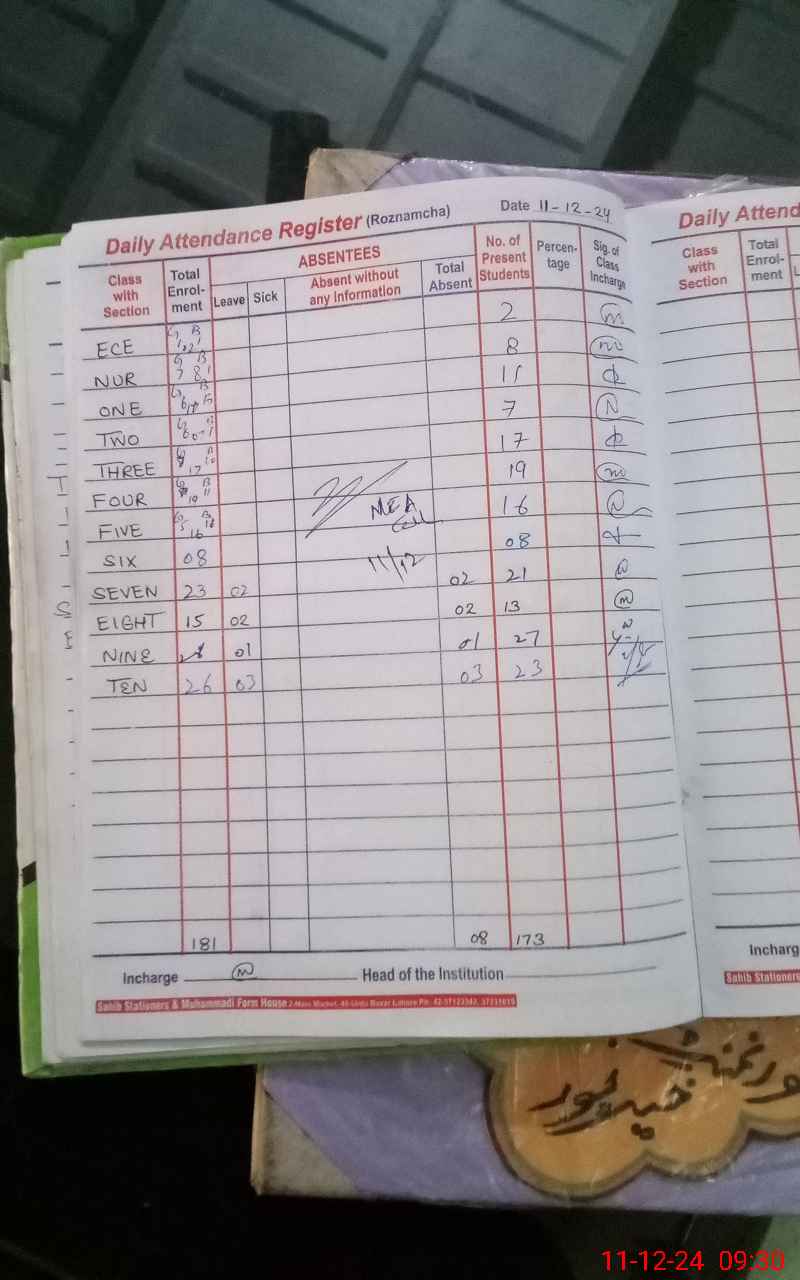 Daily Attendance Register (Roznamcha) Date 11-12-24
Class with Section Total Enrol-ment ABSENTEES Leave Sick Absent without any Information Total Absent No. of Present Students Percen-tage Sig. of Class Incharge
ECE G B 2
NUR G B 7 8 8
ONE G B
TWO G B 7
THREE G B 17 17
FOUR G B 19 19
FIVE G B 16 16
MEA
SIX 08 08
11/12
SEVEN 23 02 02 21
EIGHT 15 02 02 13
NINE 01 01 27
TEN 26 03 03 23
181 08 173
Incharge Head of the Institution
Sahib Stationers & Muhammadi Form House
Daily Attend
Class with Section Total Enrol-ment L
Incharg
Sahib Stationers
خیرپور
11-12-24 09:30